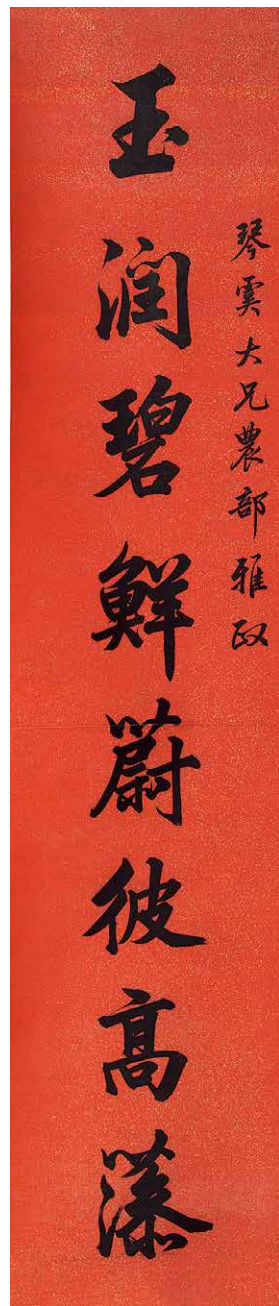 琴大兄農部雅政
玉潤碧鮮蔚彼高藻